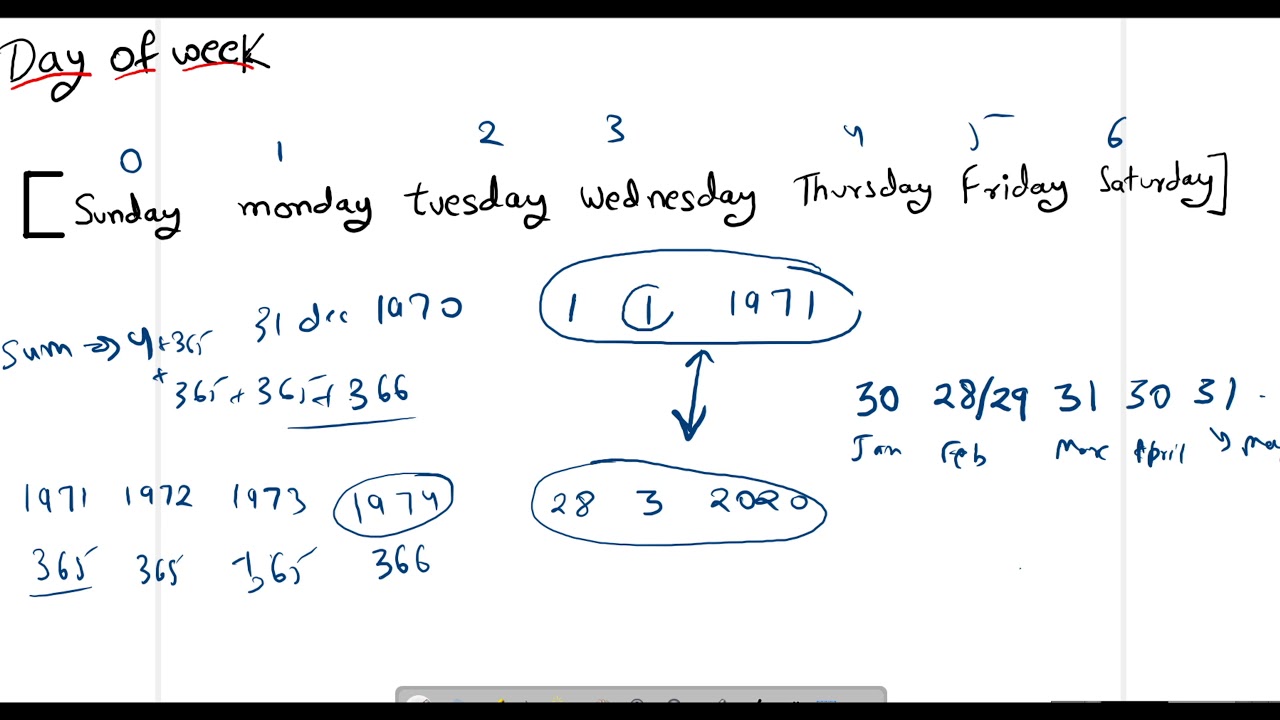 Day of week
0 1 2 3 4 5 6
[Sunday monday tuesday wednesday Thursday Friday Saturday]
1 1 1971
Sum => 4 + 365 31 dec 1970
+ 365 + 365 + 366
30 28/29 31 30 31
Jan Feb Mar April Ma
1971 1972 1973 1974
28 3 2020
365 365 365 366